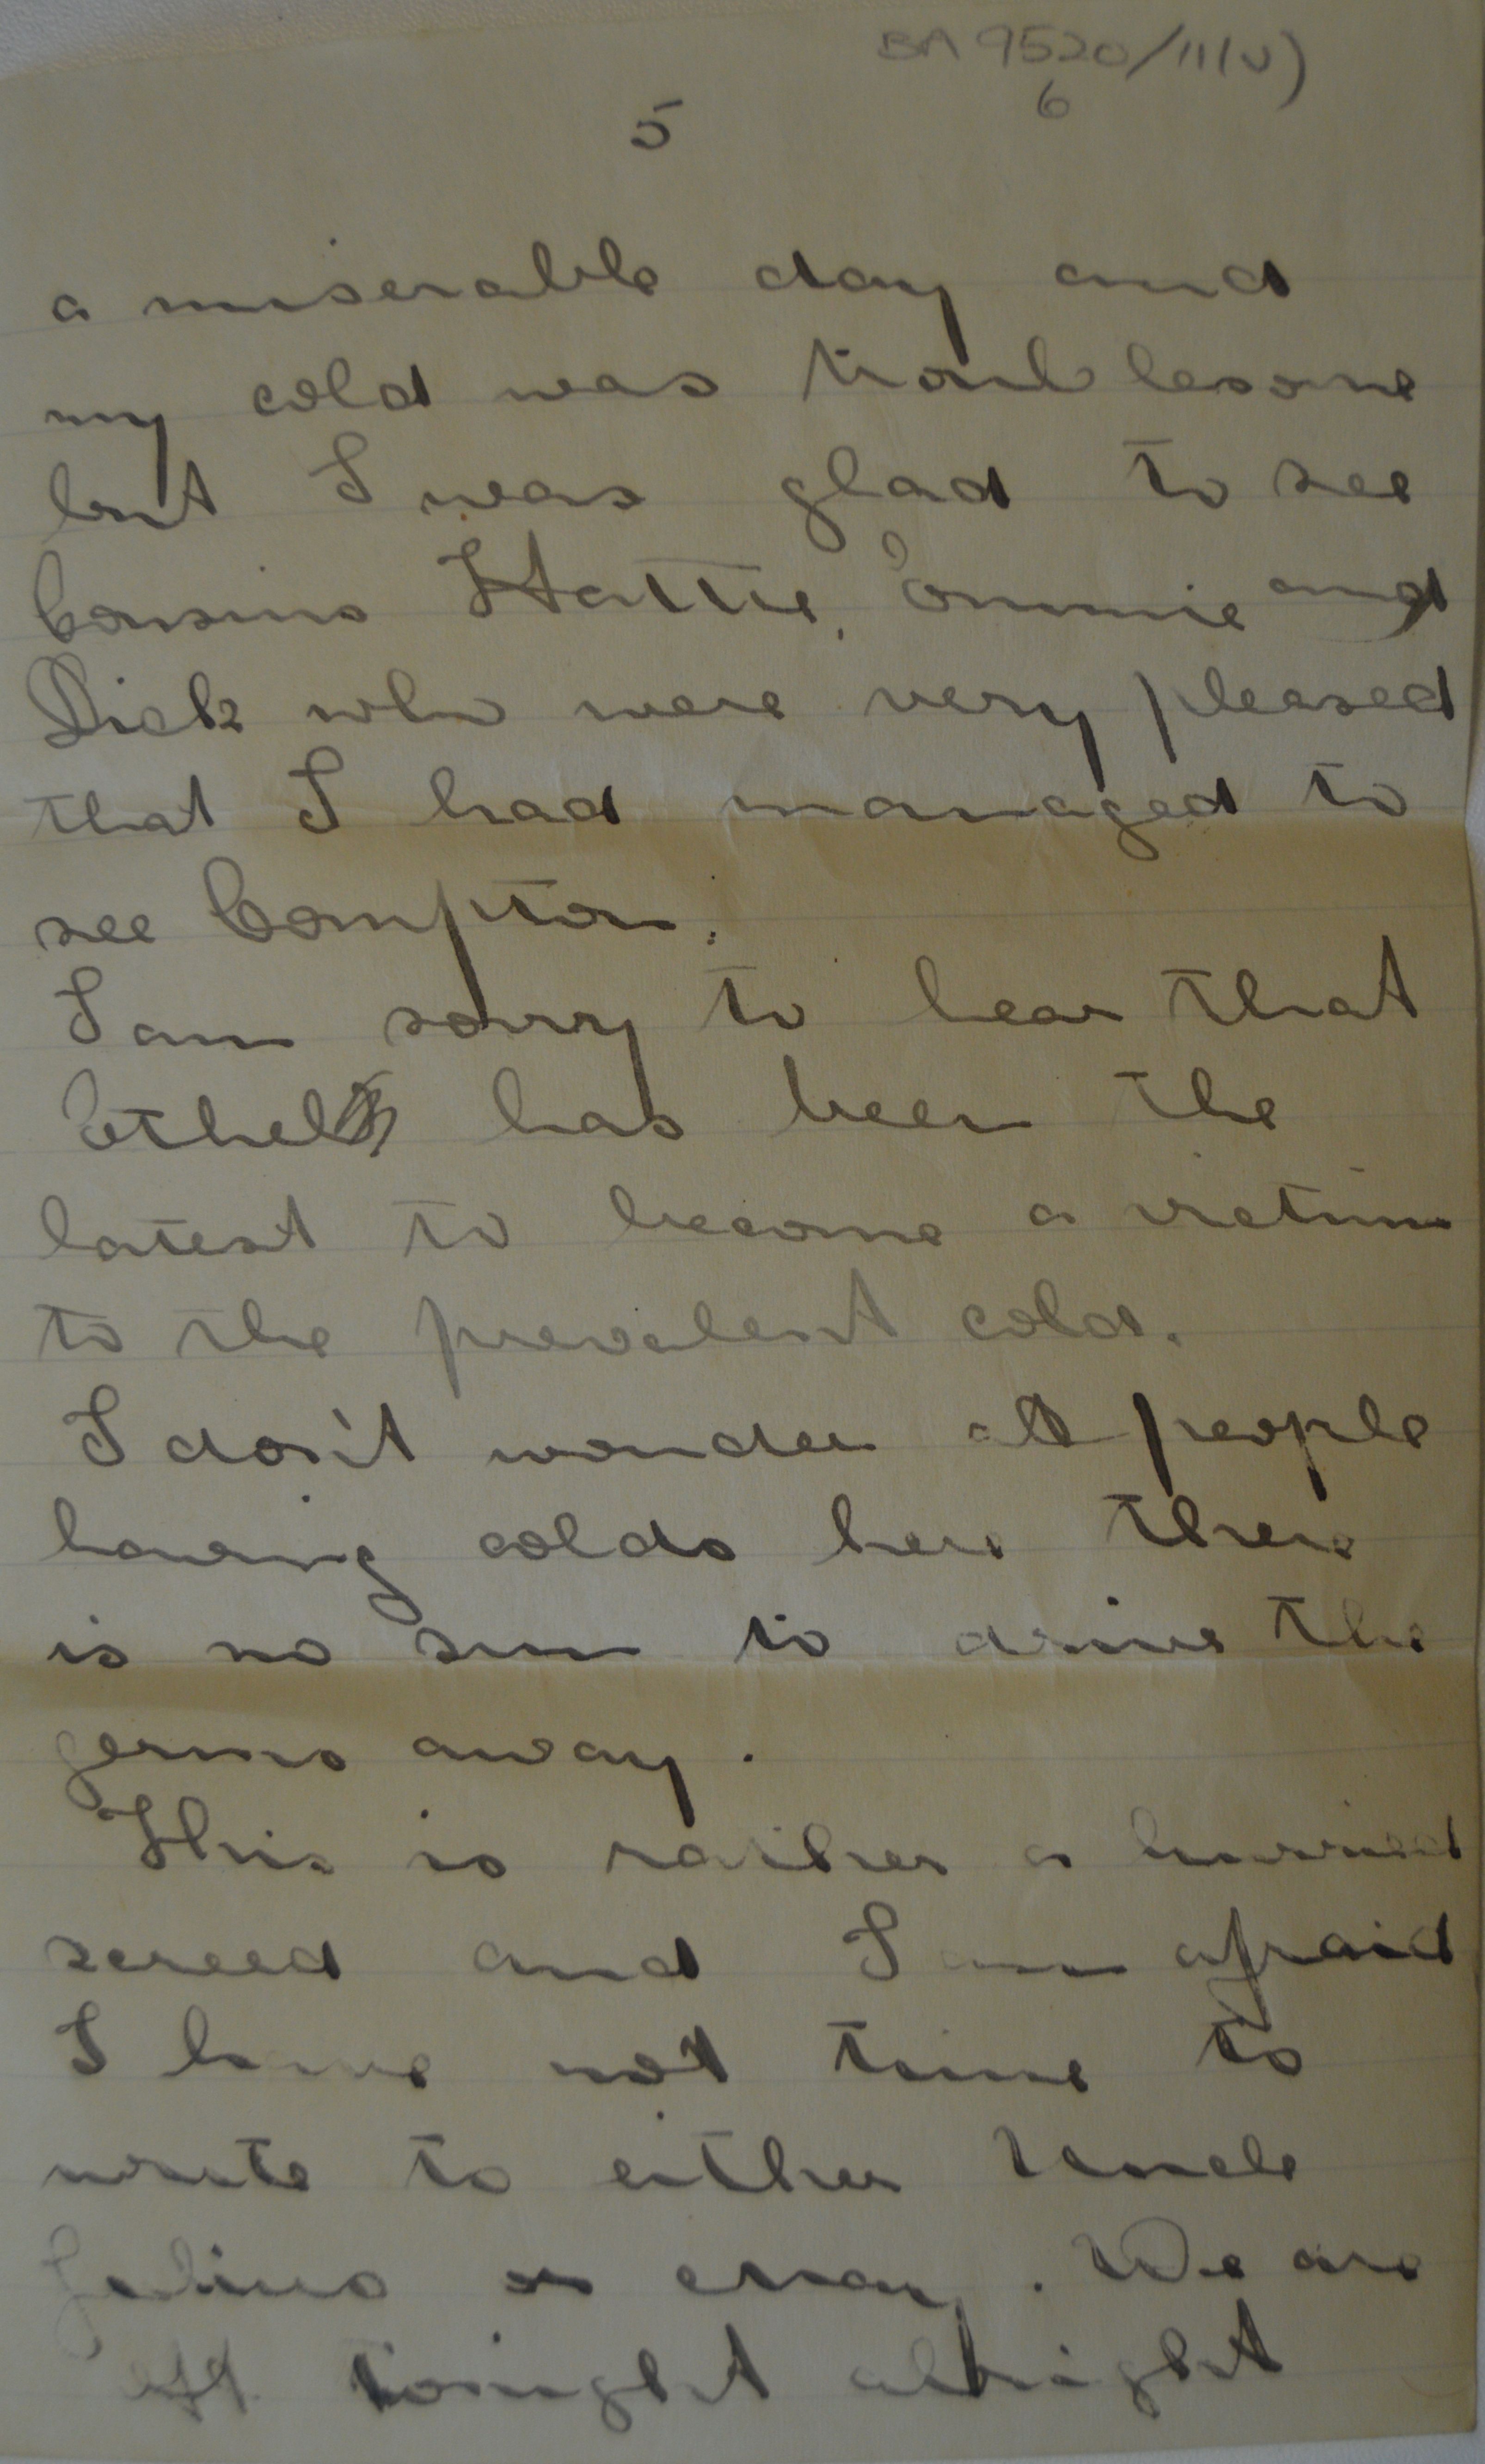 BA 9520/11(v)
6
5
a miserable day and
my cold was troublesome
but I was glad to see
Cousins Hattie, Connie and
Dick who were very pleased
that I had managed to
see Compton.
I am sorry to hear that
Ethel has been the
latest to become a victim
to the prevalent cold.
I don't wonder at people
having colds here there
is no sun to drive the
germs away.
This is rather a hurried
screed and I am afraid
I have not time to
write to either Uncle
or . We are
off tonight alright